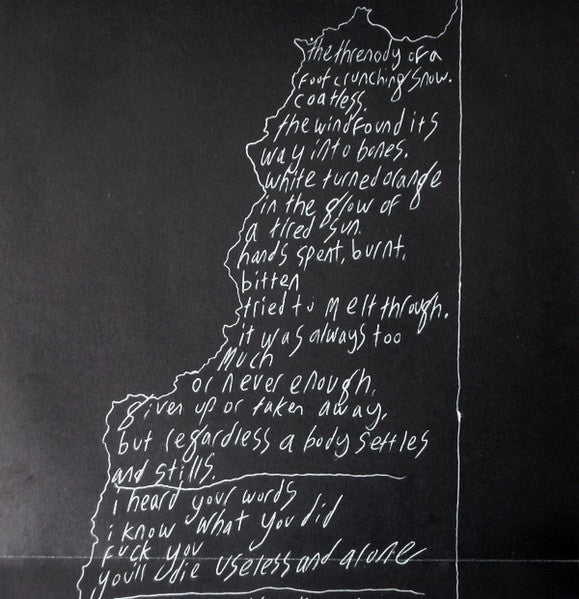 the threnody of a
foot crunching snow.
coatless.
the wind found its
way into bones.
white turned orange
in the glow of
a tired sun.
hands spent, burnt,
bitten
tried to melt through.
it was always too
much
or never enough,
given up or taken away,
but regardless a body settles
and stills.
i heard your words
i know what you did
fuck you
you'll die useless and alone